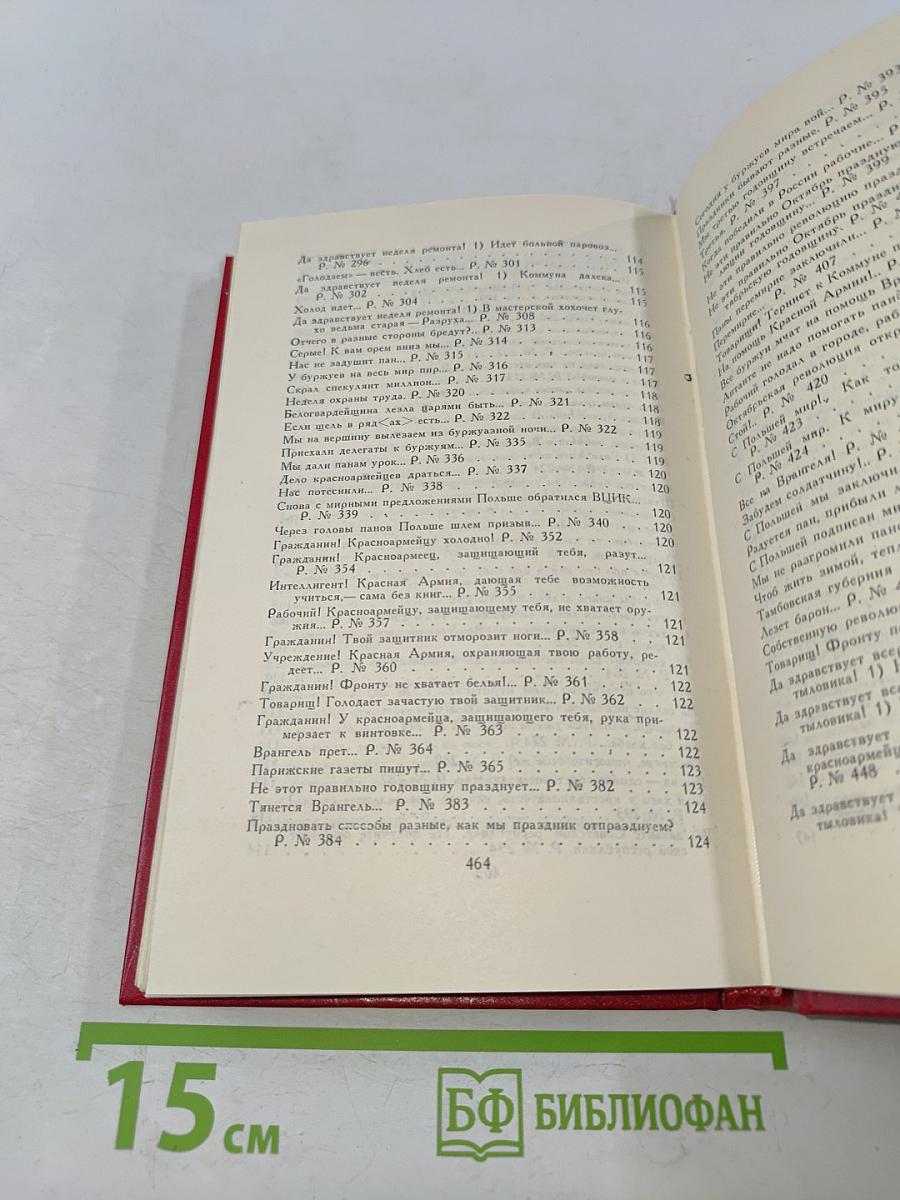 Да здравствует неделя ремонта! 1) Идет больной паровоз...
Р. № 296 . . . . . . . . . . . . . . . . . . . . . 114
«Голодаем» — весть. Хлеб есть... Р. № 301 . . . . . . . 115
Да здравствует неделя ремонта! 1) Коммуна далека...
Р. № 302 . . . . . . . . . . . . . . . . . . . . . 115
Холод идет... Р. № 304 . . . . . . . . . . . . . . . 115
Да здравствует неделя ремонта! 1) В мастерской хохочет глу-
хо ведьма старая — Разруха... Р. № 308 . . . . . . . 116
Отчего в разные стороны бредут?.. Р. № 313 . . . . . . 116
Серые! К вам орем вниз мы... Р. № 314 . . . . . . . . 116
Нас не задушит пан... Р. № 315 . . . . . . . . . . . 117
У буржуев на весь мир пир... Р. № 316 . . . . . . . . 117
Скрал спекулянт миллион... Р. № 317 . . . . . . . . . 117
Неделя охраны труда. Р. № 320 . . . . . . . . . . . . 118
Белогвардейщина лезла царями быть... Р. № 321 . . . . . 118
Если щель в ряд<ах> есть... Р. № 322 . . . . . . . . 118
Мы на вершину вылезаем из буржуазной ночи... Р. № 322 . 119
Приехали делегаты к буржуям... Р. № 335 . . . . . . . 119
Мы дали панам урок... Р. № 336 . . . . . . . . . . . 119
Дело красноармейцев драться... Р. № 337 . . . . . . . 120
Нас потеснили... Р. № 338 . . . . . . . . . . . . . . 120
Снова с мирными предложениями Польше обратился ВЦИК...
Р. № 339 . . . . . . . . . . . . . . . . . . . . . 120
Через головы панов Польше шлем призыв... Р. № 340 . . 120
Гражданин! Красноармейцу холодно! Р. № 352 . . . . . 120
Гражданин! Красноармеец, защищающий тебя, разут...
Р. № 354 . . . . . . . . . . . . . . . . . . . . . 121
Интеллигент! Красная Армия, дающая тебе возможность
учиться,— сама без книг... Р. № 355 . . . . . . . . . 121
Рабочий! Красноармейцу, защищающему тебя, не хватает ору-
жия... Р. № 357 . . . . . . . . . . . . . . . . . . 121
Гражданин! Твой защитник отморозит ноги... Р. № 358 . . 121
Учреждение! Красная Армия, охраняющая твою работу, ре-
деет... Р. № 360 . . . . . . . . . . . . . . . . . . 121
Гражданин! Фронту не хватает белья!... Р. № 361 . . . . 122
Товарищ! Голодает зачастую твой защитник... Р. № 362 . . 122
Гражданин! У красноармейца, защищающего тебя, рука при-
мерзает к винтовке... Р. № 363 . . . . . . . . . . . 122
Врангель прет... Р. № 364 . . . . . . . . . . . . . . 122
Парижские газеты пишут... Р. № 365 . . . . . . . . . 123
Не этот правильно годовщину празднует... Р. № 382 . . . 123
Тянется Врангель... Р. № 383 . . . . . . . . . . . . 124
Праздновать способы разные, как мы праздник отпразднуем?
Р. № 384 . . . . . . . . . . . . . . . . . . . . . 124
464
Сегодня у буржуев мира вой... Р. № 393
Праздники бывают разные. Р. № 395
Мы третью годовщину встречаем... Р.
Третья. Р. № 397
Когда победили в России рабочие... Р.
Не эти правильно Октябрь празднуют
люции годовщину... Р. № 399
Не эти правильно революцию празд
Не эти правильно Октября праздн
тябрьскую годовщину. Р. №
Паны перемирие заключили...
Перемирие... Р. № 407
Товарищи! Тернист к Коммуне п
На помощь Красной Армии!..
Все буржуи мчат на помощь Вр
Антанте не надо помогать пан
Рабочий голода в городе, раб
Октябрьская революция откр
Стой!.. Р. № 420
С Польшей мир!. Как то
Р. № 423
С Польшей мир. К миру
Р. № 424
Все на Врангеля! Р. №
Забудем солдатчину!.. Р.
С Польшей мы заключи
Радуется пан, прибыли л
С Польшей подписан ми
Мы не разгромили пан
Чтоб жить зимой, тепл
Тамбовская губерния
Лезет барон... Р. №
Собственную револю
Товарищ! Фронту по
Да здравствует все
тыловика! 1)
Да здравствует все
тыловика! 1)
Да здравствует
красноармейц
Р. № 448
Да здравствует
тыловика!
15 см
БФ БИБЛИОФАН